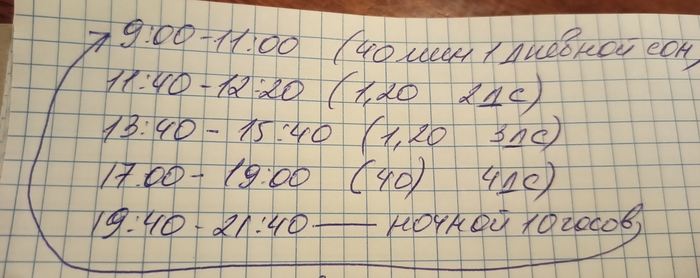 9:00-11:00 (40 мин 1 дневной сон)
11:40-12:20 (1,20 2дс)
13:40-15:40 (1,20 3дс)
17.00-19:00 (40) 4дс)
19:40-21:40 — ночной 10 часов